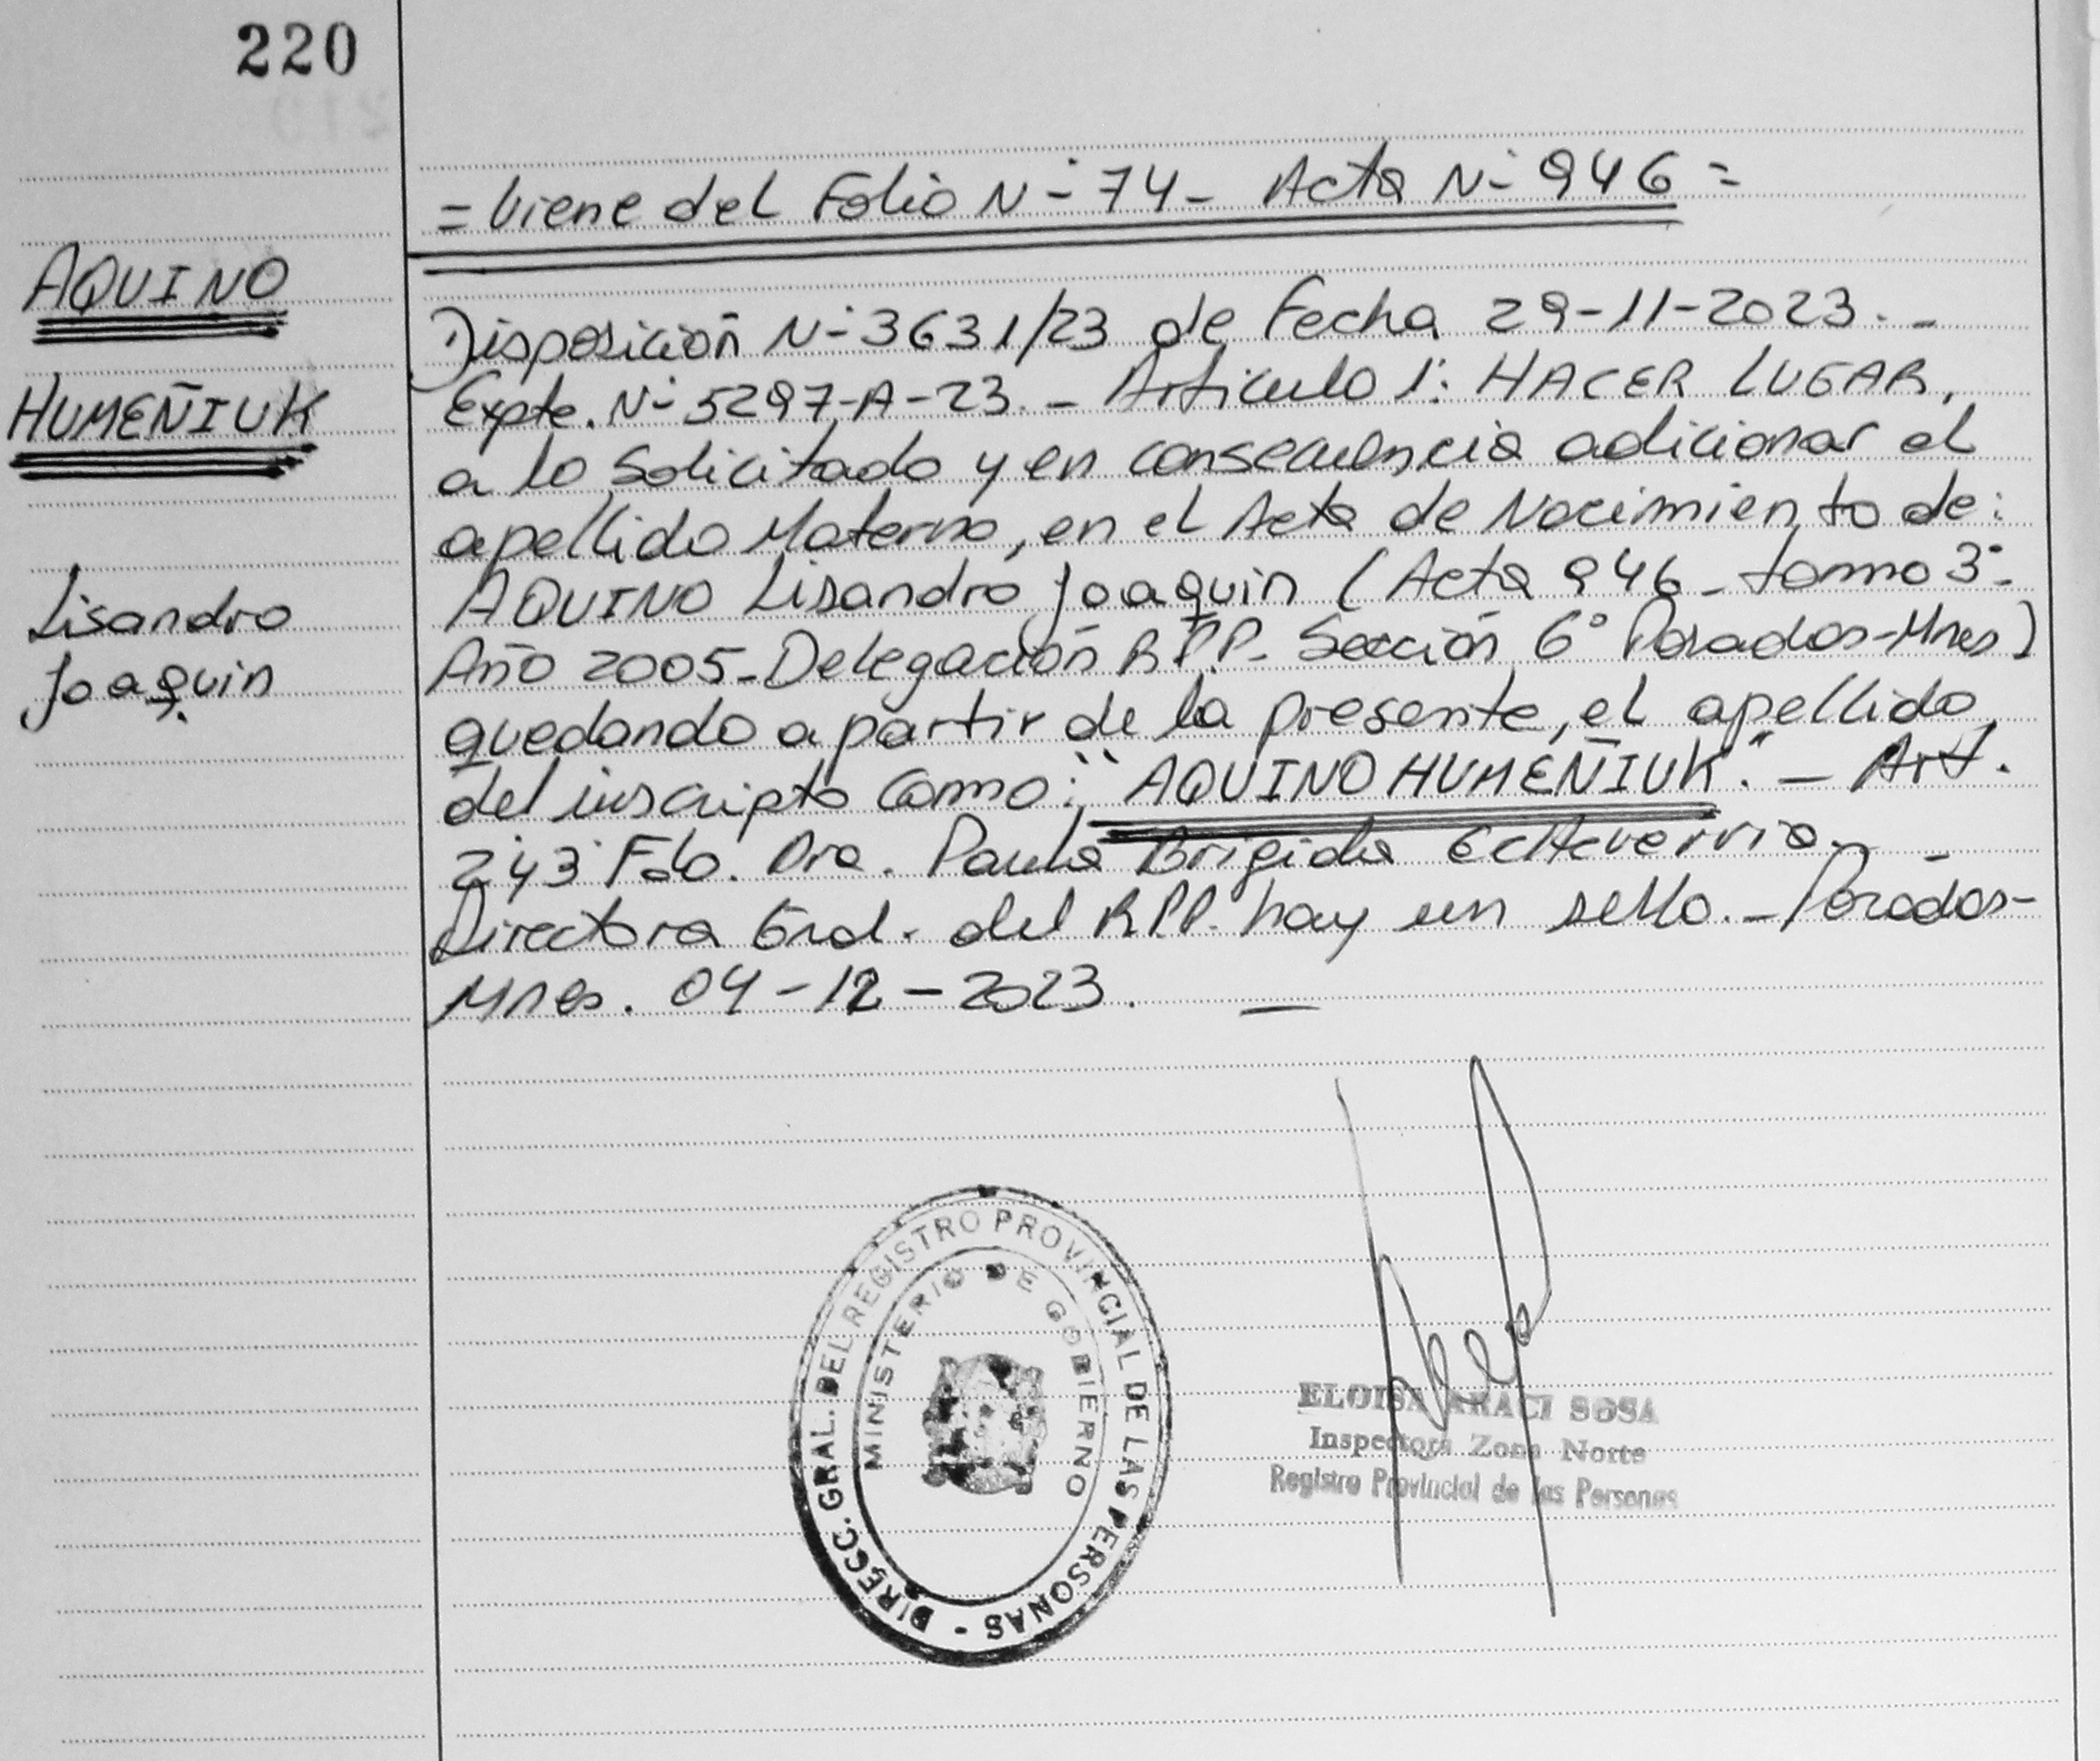 220
= Viene del Folio Nº 74 - Acta Nº 946 =
AQUINO
HUMEÑIUK
Lisandro
Joaquin
Disposición Nº 3631/23 de Fecha 29-11-2023. -
Expte. Nº 5297-A-23. - Artículo 1º: HACER LUGAR,
a lo solicitado y en consecuencia adicionar el
apellido Materno, en el Acta de Nacimiento de:
AQUINO Lisandro Joaquin (Acta 946 - tomo 3º -
Año 2005 - Delegación R.P.P. Sección 6º Posadas - Mnes)
quedando a partir de la presente, el apellido
del inscripto como: "AQUINO HUMEÑIUK". - Art.
2º y 3º Fdo. Dra. Paula Brigida Echeverria. -
Directora Gral. del R.P.P. hay un sello. - Posadas -
Mnes. 04 - 12 - 2023. —
DIRECC. GRAL. DEL REGISTRO PROVINCIAL DE LAS PERSONAS -
MINISTERIO DE GOBIERNO
ELOISA ARACI SOSA
Inspectora Zona Norte
Registro Provincial de las Personas